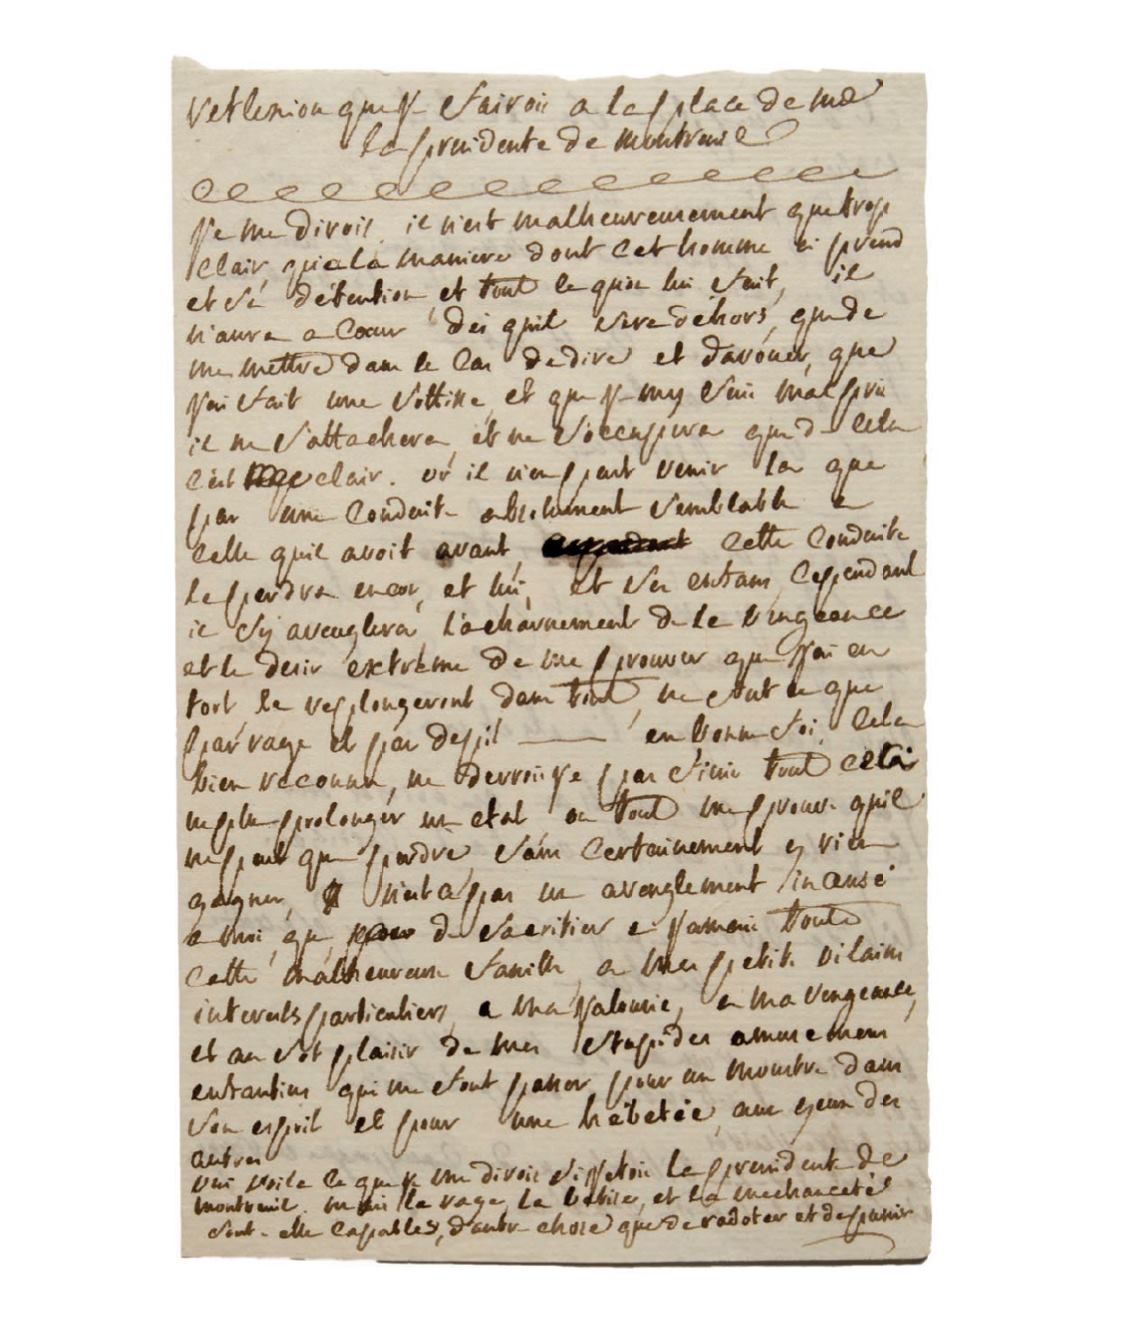 reflexion que je fairois a la place de md
la presidente de montreuil
je me dirois, il n'est malheureusement que trop
clair qu'a la maniere dont cet homme si prend
et sa détention et tout ce qu'on lui fait, il
n'aura a coeur des quil sera déhors, que de
me mettre dans le cas de dire et d'avouer que
j'ai fait une sottise, et que je my suis mal pris
il ne s'attachera et ne s'occupera que de cela
c'est clair. or il n'en peut venir la que
par une conduite absolument semblable a
celle quil avoit avant, cette conduite
le perdra encor, et lui, et ses enfans, cependant
il s'y aveuglera l'acharnement de la vengeance
et le desir extrême de me prouver que j'ai eu
tort le replongeront dans tout, ne fut ce que
par rage et par depit en bonne foi, cela
bien reconnu, ne devrois je pas finir tout cela
ne plus prolonger un etat ou tout me prouve quil
ne peut que perdre sans certainement y rien
gagner, n'est a pas un aveuglement insensé
a moi, que de sacrifier a jamais toute
cette malheureuse famille, a mes petits vilains
interests particuliers, a ma jalousie, a ma vengeance,
et au sot plaisir de mes stupides amusemens
enfantins qui me font passer pour un monstre dans
son esprit et pour une hébétée aux yeux des
autres
oui voila ce que je me dirois si j'etois la presidente de
montreuil. mais la rage, la bêtise, et la mechanceté
sont-elle capables, d'autre chose que de radoter et de punir